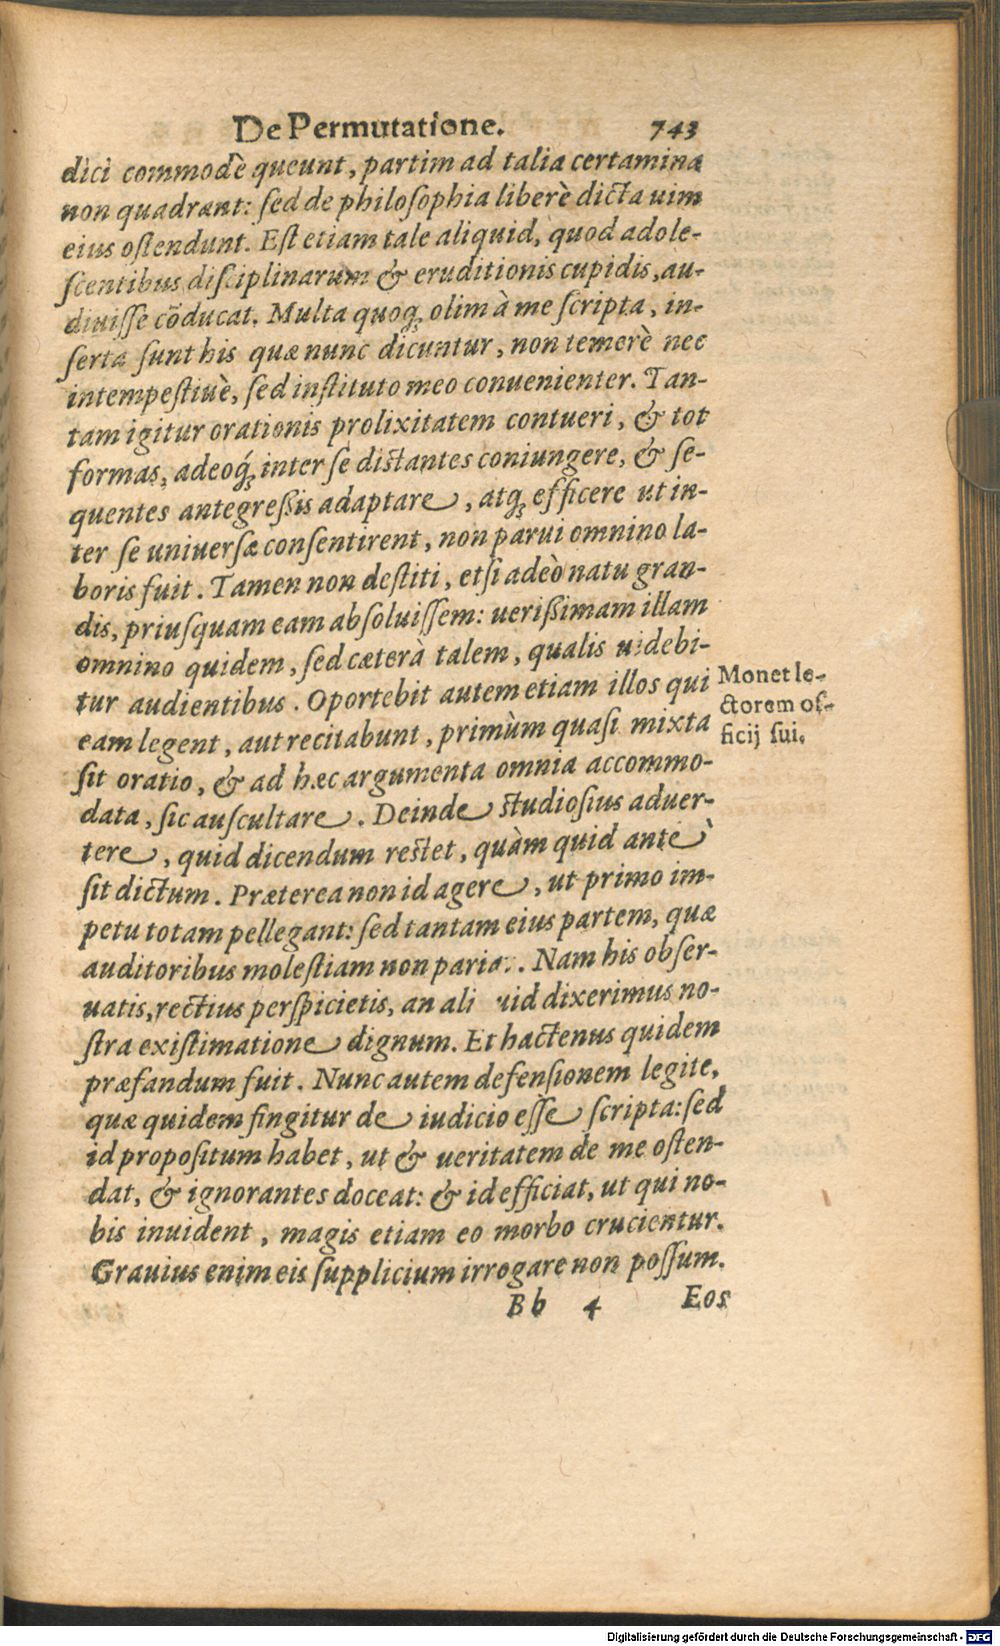 De Permutatione. 743
dici commodè queunt, partim ad talia certamina
non quadrant: ſed de philoſophia liberè dicta uim
eius oſtendunt. Eſt etiam tale aliquid, quod adole-
ſcentibus diſciplinarum & eruditionis cupidis, au-
diuiſſe cōducat. Multa quoq; olim à me ſcripta, in-
ſerta ſunt his quæ nunc dicuntur, non temerè nec
intempeſtiuè, ſed inſtituto meo conuenienter. Tan-
tam igitur orationis prolixitatem contueri, & tot
formas, adeoq́; inter ſe diſtantes coniungere, & ſe-
quentes antegreßis adaptare, atq; efficere ut in-
ter ſe uniuerſæ conſentirent, non parui omnino la-
boris fuit. Tamen non deſtiti, etſi adeò natu gran-
dis, priuſquam eam abſoluiſſem: ueriſsimam illam
omnino quidem, ſed cæterà talem, qualis uidebi-
tur audientibus. Oportebit autem etiam illos qui
eam legent, aut recitabunt, primùm quaſi mixta
ſit oratio, & ad hæc argumenta omnia accommo-
data, ſic auſcultare. Deinde ſtudioſius aduer-
tere, quid dicendum reſtet, quàm quid antè
ſit dictum. Præterea non id agere, ut primo im-
petu totam pellegant: ſed tantam eius partem, quæ
auditoribus moleſtiam non paria. . Nam his obſer-
uatis, rectius perſpicietis, an ali uid dixerimus no-
ſtra exiſtimatione dignum. Et hactenus quidem
præfandum fuit. Nunc autem defenſionem legite,
quæ quidem fingitur de iudicio eſſe ſcripta: ſed
id propoſitum habet, ut & ueritatem de me oſten-
dat, & ignorantes doceat: & id efficiat, ut qui no-
bis inuident, magis etiam eo morbo crucientur.
Grauius enim eis ſupplicium irrogare non poſſum.
Bb 4 Eos
Monet le-
ctorem of-
ficij ſui.
Digitalisierung gefördert durch die Deutsche Forschungsgemeinschaft - DFG